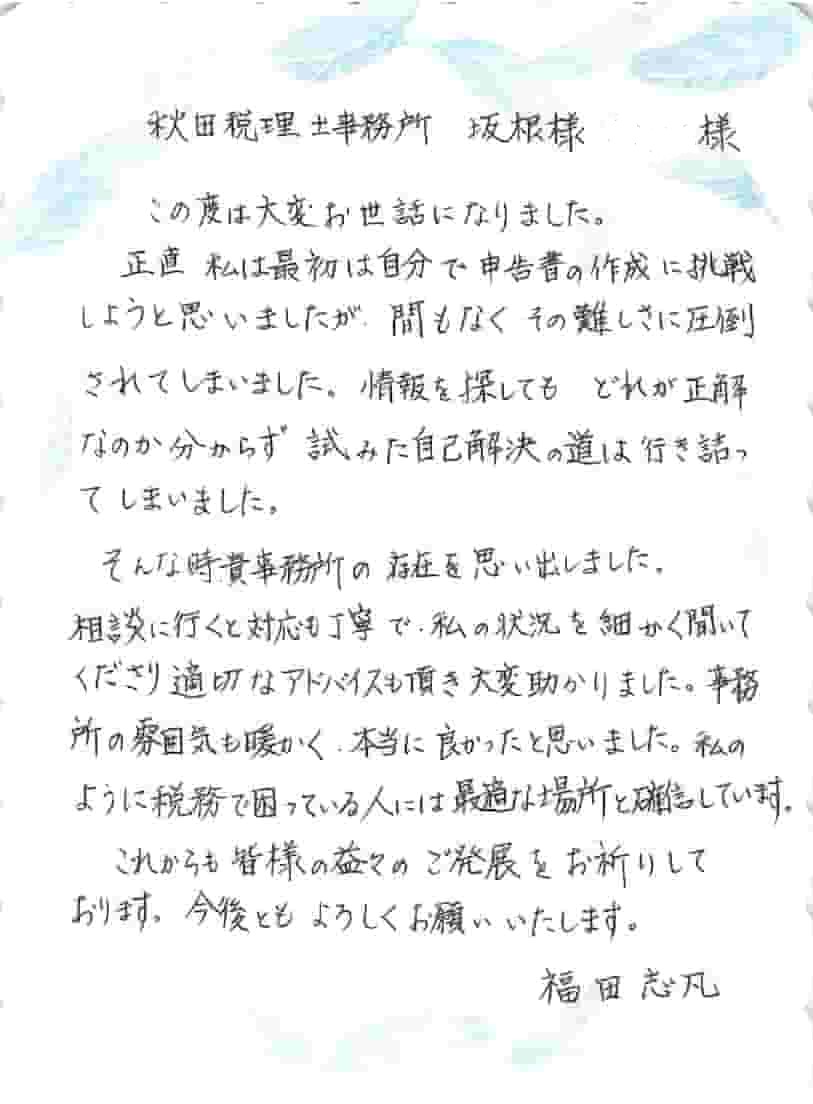 秋田税理士事務所 坂根様 様
この度は大変お世話になりました。
正直 私は最初は自分で申告書の作成に挑戦
しようと思いましたが、間もなく その難しさに圧倒
されてしまいました。情報を探しても どれが正解
なのか分からず 試みた自己解決の道は行き詰っ
てしまいました。
そんな時貴事務所の存在を思い出しました。
相談に行くと対応も丁寧で、私の状況を細かく聞いて
くださり適切なアドバイスも頂き大変助かりました。事務
所の雰囲気も暖かく、本当に良かったと思いました。私の
ように税務で困っている人には最適な場所と確信しています。
これからも皆様の益々のご発展をお祈りして
おります。今後ともよろしくお願いいたします。
福田志凡